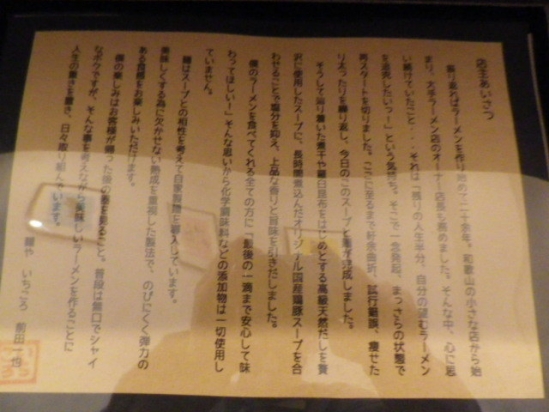 店主あいさつ
振り返ればラーメンを作り始め二十余年。和歌山の小さな店から始
まり、大手ラーメン店のオーナー店長も務めました。そんな中、心に思
い続けていたこと・・・それは「残りの人生半分、自分の望むラーメン
を追究したいっ！」という気持ち。そこで一念発起、まっさらの状態で
再スタートを切りました。ここに至るまで紆余曲折、試行錯誤、痩せた
り太ったりを繰り返し、今日のこのスープと麺が完成しました。
そうして辿り着いた煮干や羅臼昆布をはじめとする高級天然だしを贅
沢に使用したスープに、長時間煮込んだオリジナル国産鶏豚スープを合
わせることで塩分を抑え、上品な香りと旨味を引きだしました。
僕のラーメンを食べてくれる全ての方に「最後の一滴まで安心して味
わってほしい！」そんな思いから化学調味料などの添加物は一切使用し
ていません。
麺はスープとの相性を考えて自家製麺を導入しています。
美味しくする為に欠かせない熟成を重視した製法で、のびにくく弾力の
ある食感をお楽しみいただけます。
僕の楽しみはお客様が帰った後の器を見ること。普段は無口でシャイ
なボクですが、そんな事を考えながら美味しいラーメンを作ることに
人生の重きを置き、日々取り組んでいます。
麺や いちころ 前田一也